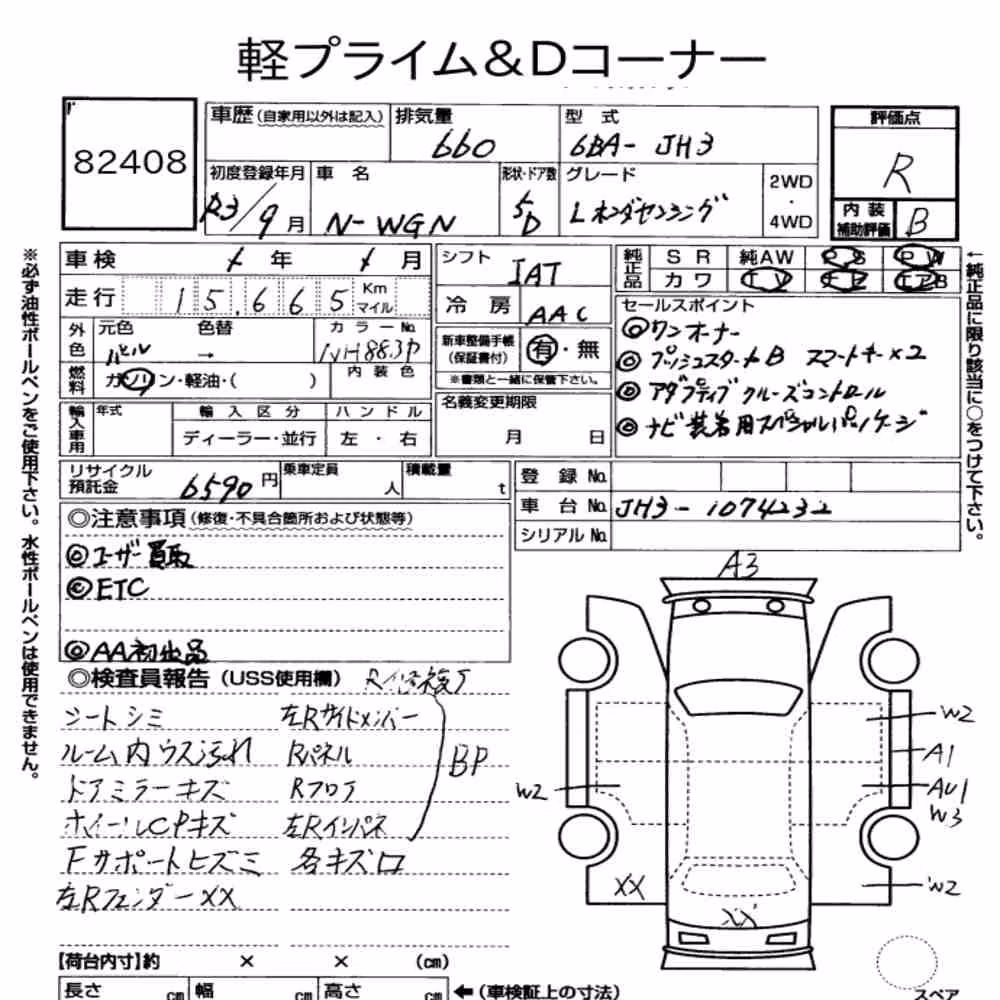 軽プライム&Dコーナー
82408
車歴 (自家用以外は記入) 排気量 型式
660 6BA- JH3
初度登録年月 車名 形状・ドア数 グレード 2WD ・ 4WD
R3/9月 N-WGN 5D L ホンダセンシング
評価点
R
内装補助評価 B
車検 年 月
走行 15,665 Km マイル
外色 元色 色替 カラーNo.
→ NH883P
燃料 ガソリン・軽油・( ) 内装色
輸入車用 年式 輸入区分 ハンドル
ディーラー・並行 左・右
シフト IAT
冷房 AAC
新車整備手帳(保証書付) 有・無
※書類と一緒に保管下さい。
名義変更期限
月 日
純正品 SR 純AW PS PW
カワ TV ナビ エアB
セールスポイント
◎ワンオーナー
◎プッシュスタートB スマートキー×2
◎アダプティブクルーズコントロール
◎ナビ装着用スペシャルパッケージ
←純正品に限り該当に○をつけて下さい。
※必ず油性ボールペンをご使用下さい。水性ボールペンは使用できません。
リサイクル預託金 6590円 乗車定員 人 積載量 t
登録No.
車台No. JH3-1074232
シリアルNo.
◎注意事項(修復・不具合箇所および状態等)
◎ユーザー買取
◎ETC
◎AA初出品
◎検査員報告(USS使用欄)
シートシミ 左Rサイドメンバー
ルーム内ウス汚れ Rパネル
ドアミラーキズ Rフロア
ホイールCPキズ 左Rインパネ
BP
Fサポートヒズミ 各キズロ
左RフェンダーXX
A3
W2
A1
AU1
W3
W2
W2
XX
XX
【荷台内寸】約 × × (cm)
長さ cm 幅 cm 高さ cm ←(車検証上の寸法)
スペア